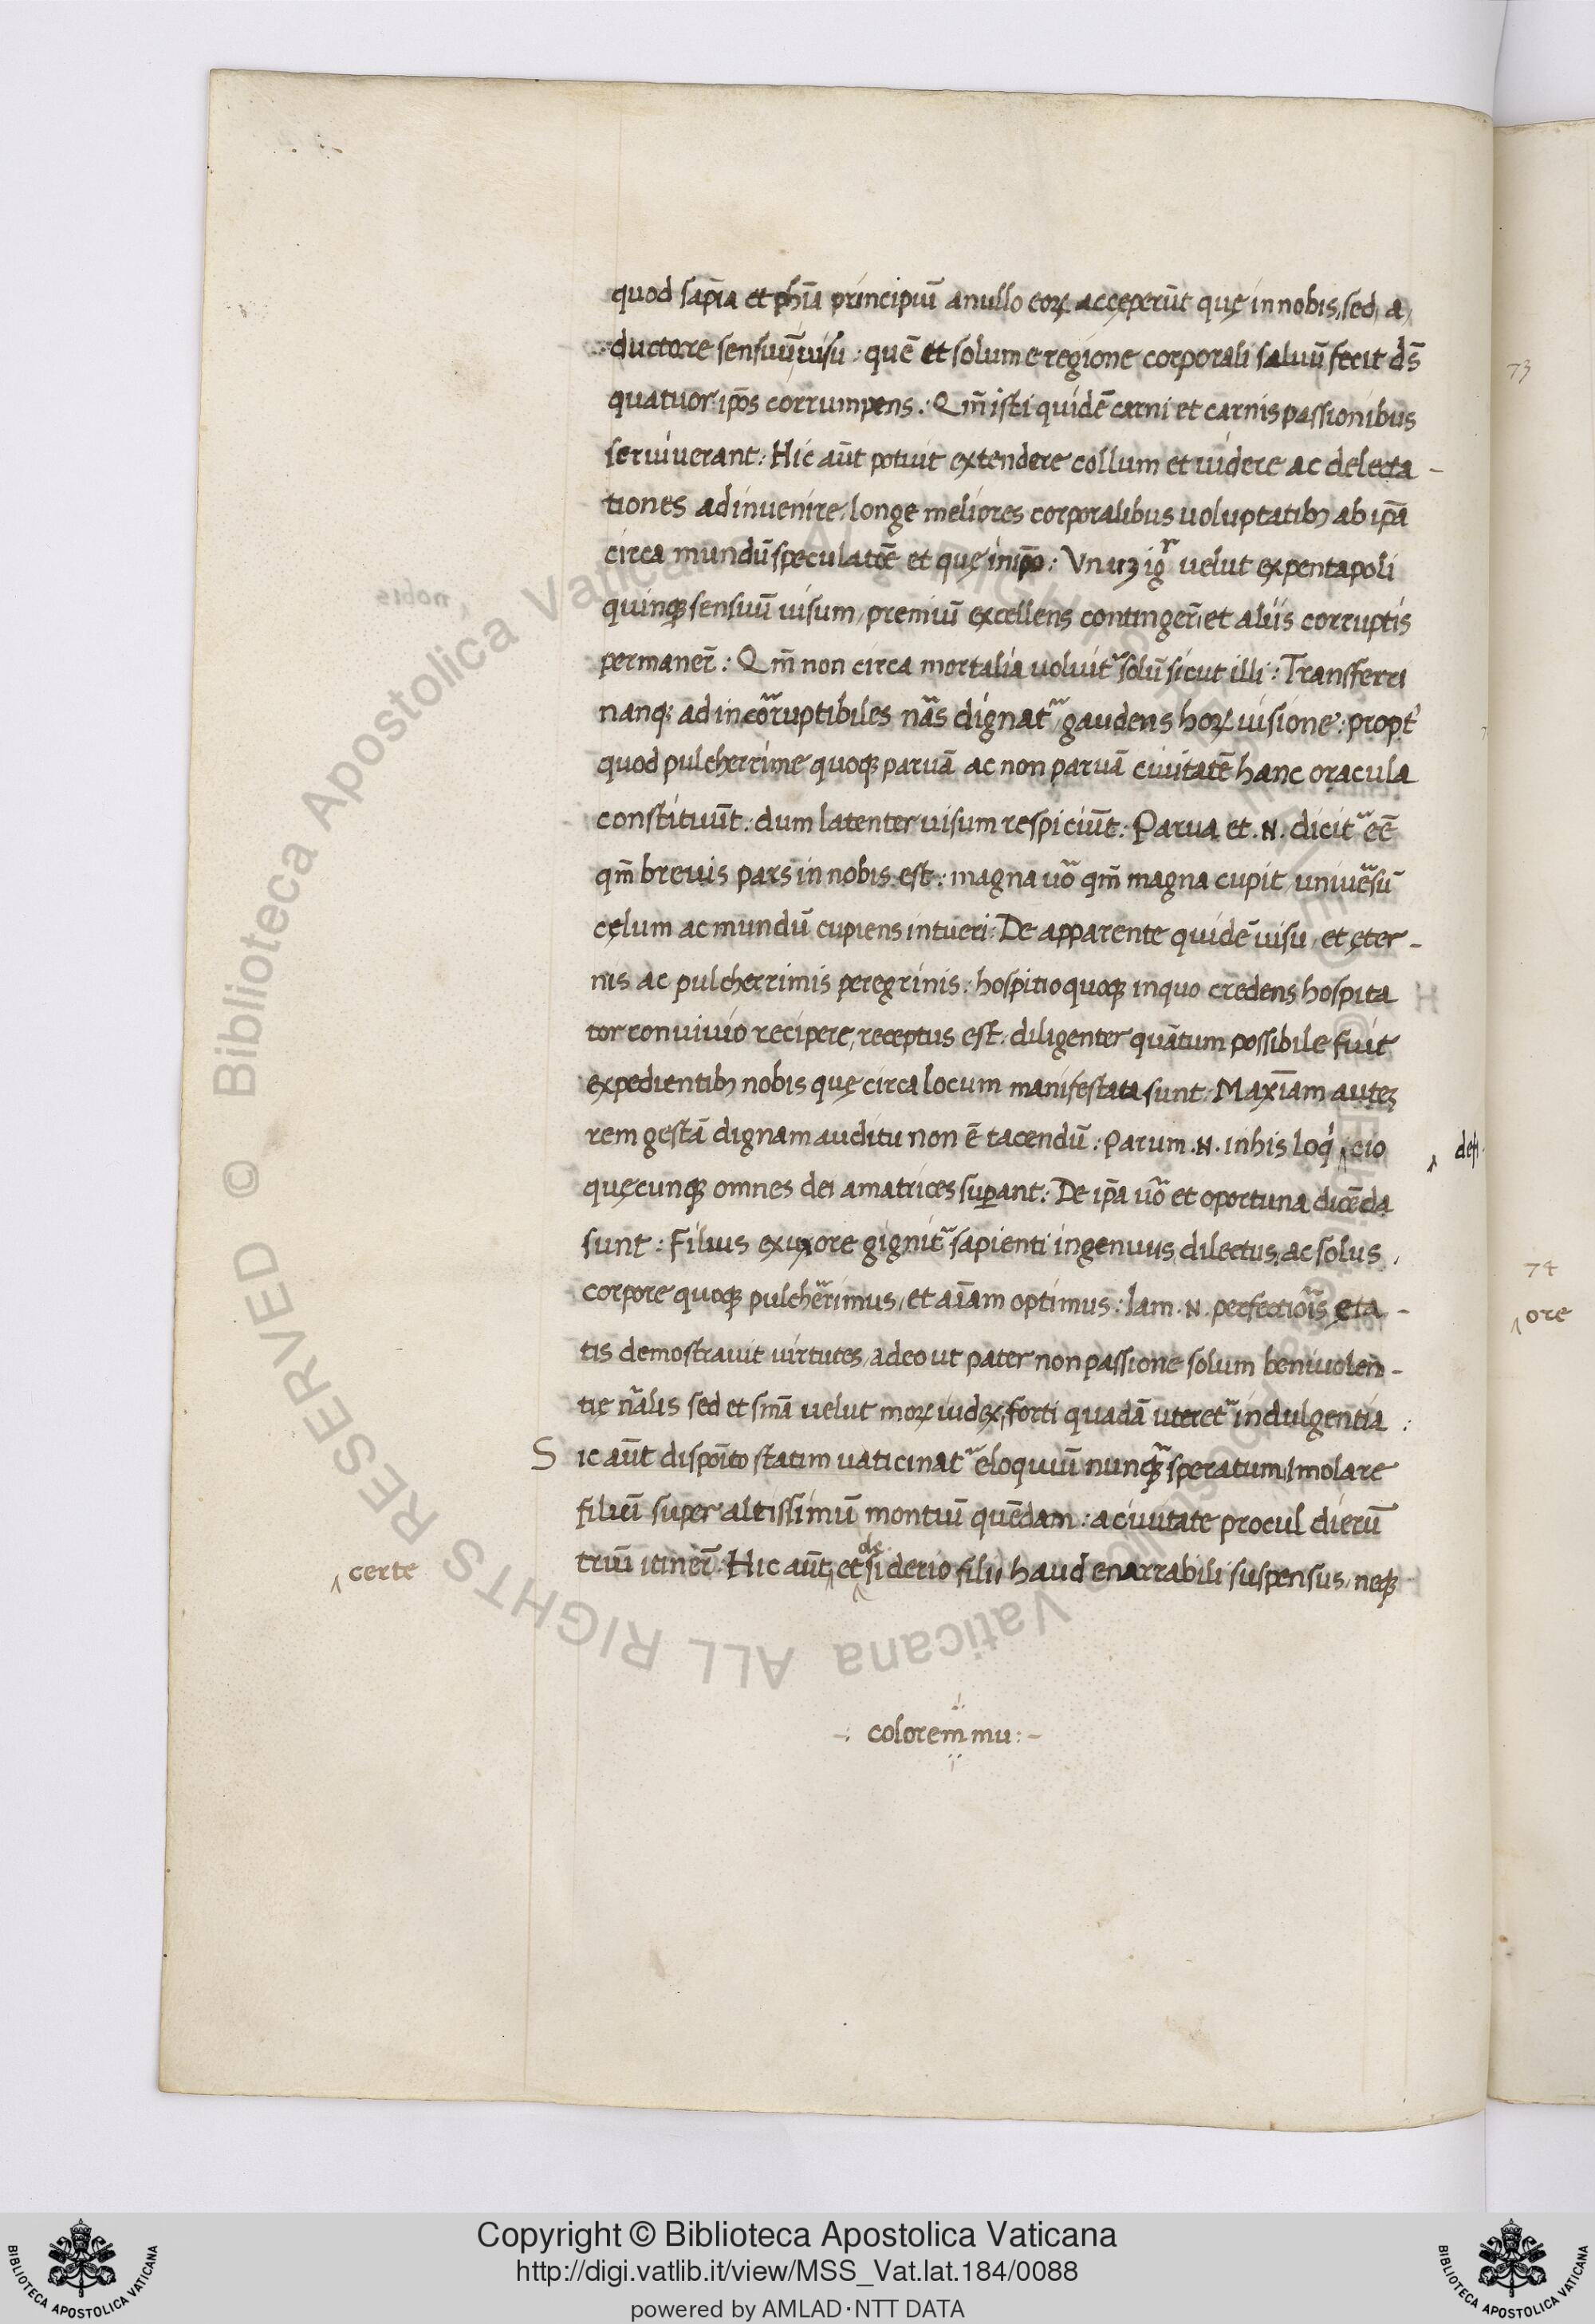 quod sap̄ia et ph̄ia principiū a nullo eoꝝ acceperūt quę in nobis, sed, a,
ductore sensuū, uisu : quē et solum e regione corporali saluū fecit dn̄s
quatuor ip̄os corrumpens : Qm̄ isti quidē carni et carnis passionibus
seruiuerant : Hic aūt potuit extendere collum et uidere ac delecta-
tiones adinuenire, longe meliores corporalibus uoluptatibꝫ ab ip̄a
circa mundū speculatōe et quę in ip̄o : Vnuꝫ igr̃ velut ex pentapoli
quinqꝫ sensuū uisum, premiū excellens contingeř, et aliis corruptis
permaneř : Qm̄ non circa mortalia voluit᷑ solū sicut illi : Transferri
nanqꝫ ad incor̃ruptibiles nãs dignat᷑ gaudens hoꝝ uisione : propt̓
quod pulcherrime quoqꝫ paruā ac non paruā ciuitatē hanc oracula
constituūt : dum latenter uisum respiciūt : Parua et .N. dicit᷑ eē
qm̄ breuis pars in nobis est : magna uõ qm̄ magna cupit, uniuẽsū
cęlum ac mundū cupiens intueri : De apparente quidē uisu, et ęter-
nis ac pulcherrimis peregrinis : hospitio quoqꝫ in quo credens hospita
tor conuiuio recipere, receptus est : diligenter quātum possibile fuit
expedientibꝫ nobis quę circa locum manifestata sunt : Maxīam auteꝫ
rem gestā dignam auditu non ē tacendū : Parum .N. in his loq̓ ‸cio
quęcunqꝫ omnes dei amatrices suꝑant : De ip̄a uõ et oportuna dicēda
sunt : Filius ex uxore gignit᷑ sapienti ingenuus, dilectus, ac solus,
corpore quoqꝫ pulchẽrimus, et aīam optimus : Iam .N. perfectiõis ęta-
tis demostrauit uirtutes, adeo ut pater non passione solum beniuolen-
tię ñalis sed et sn̄ia uelut moꝝ iudex, forti quadā uteret᷑ indulgentia :
Sic aūt dispōito statim uaticinat᷑ eloquiū nunqꝫ̃ speratum, Imolare
filiū super altissimū montiū quēdam : a ciuitate procul dierū
triū itineř : Hic aūt‸ et de‸siderio filii haud enarrabili suspensus, neqꝫ
‸ certe
‸ defi
colorem mu :-
73
74
‸ ore
Copyright © Biblioteca Apostolica Vaticana
http://digi.vatlib.it/view/MSS_Vat.lat.184/0088
powered by AMLAD·NTT DATA
© Biblioteca Apostolica Vaticana ALL RIGHTS RESERVED
BIBLIOTECA APOSTOLICA VATICANA
BIBLIOTECA APOSTOLICA VATICANA